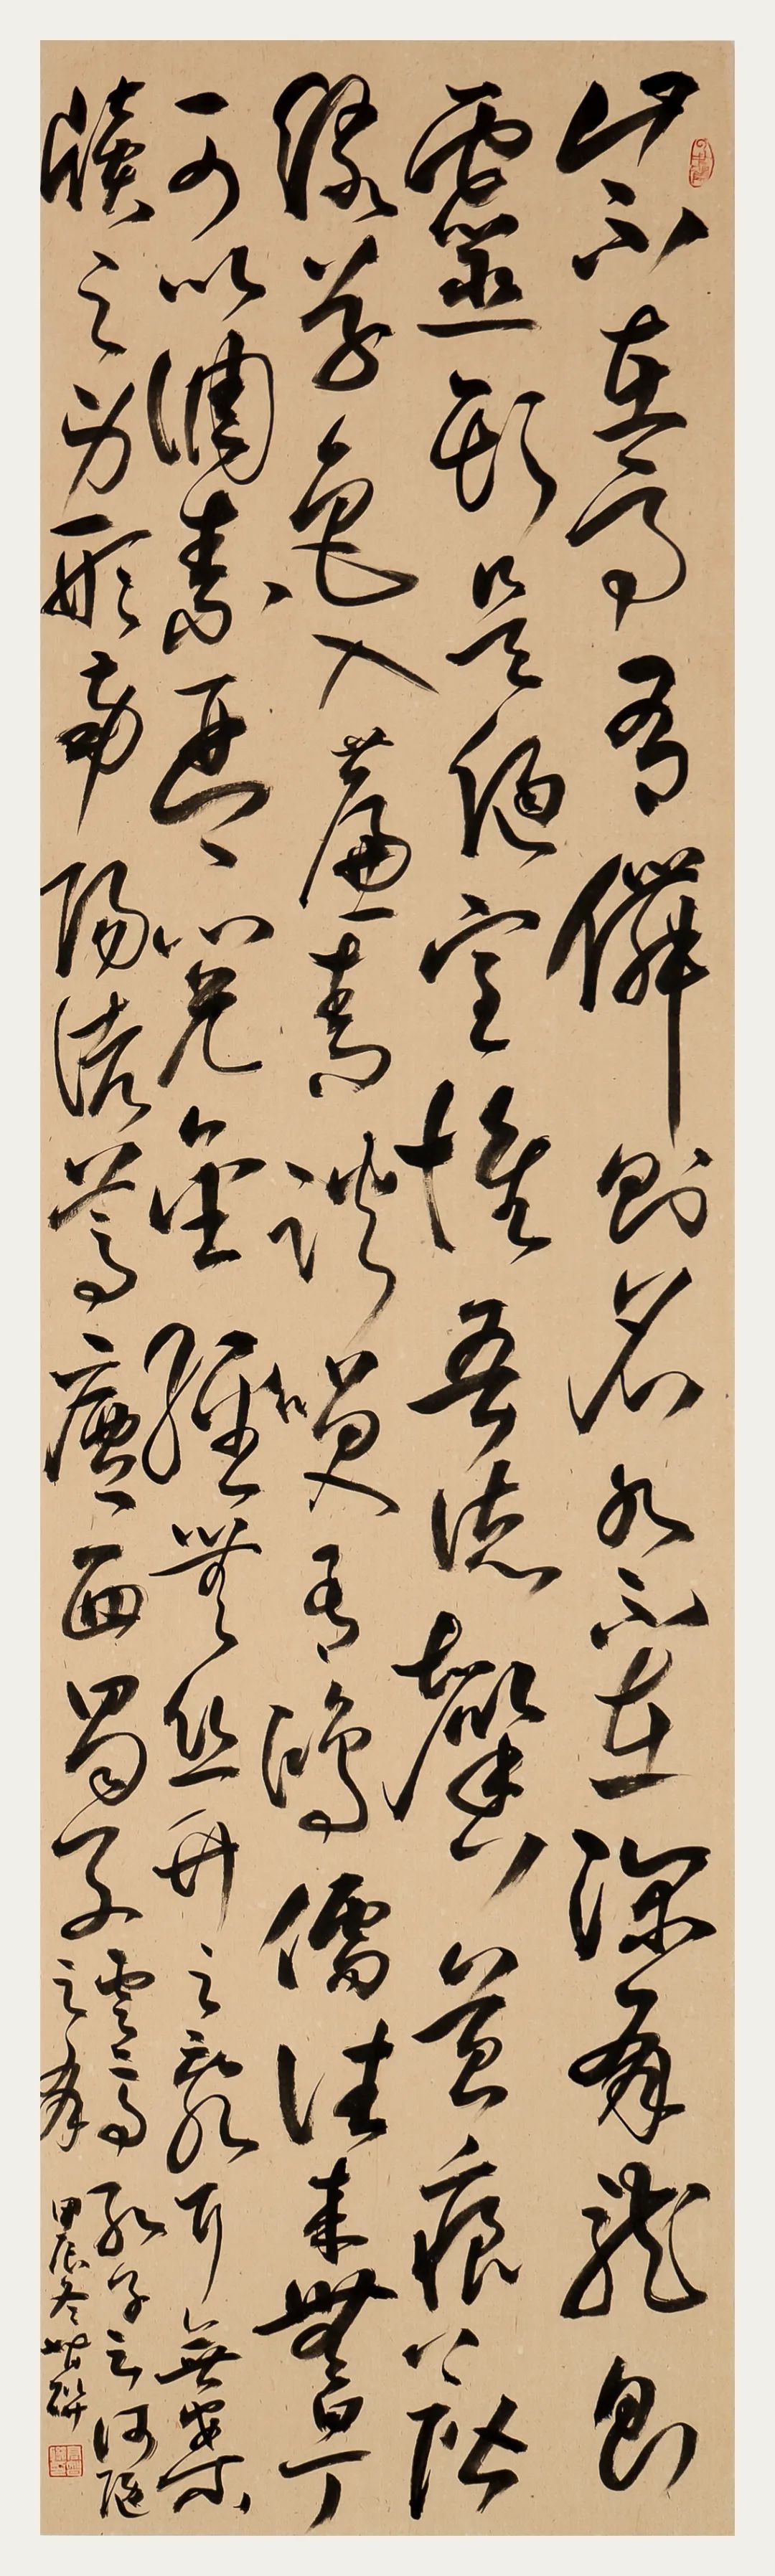 山不在高有僊則名水不在深有龍則
靈斯是陋室惟吾德馨苔痕上階
綠草色入簾青談笑有鴻儒往來無白丁
可以調素琴閱金經無絲竹之亂耳無案
牘之勞形南陽諸葛廬西蜀子
雲亭孔子云何陋
之有
甲辰冬